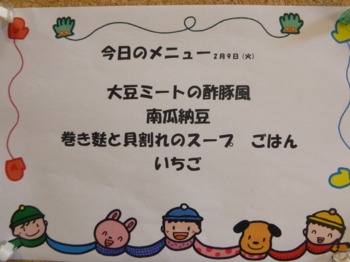 今日のメニュー 2月9日(火)
大豆ミートの酢豚風
南瓜納豆
巻き麩と貝割れのスープ ごはん
いちご